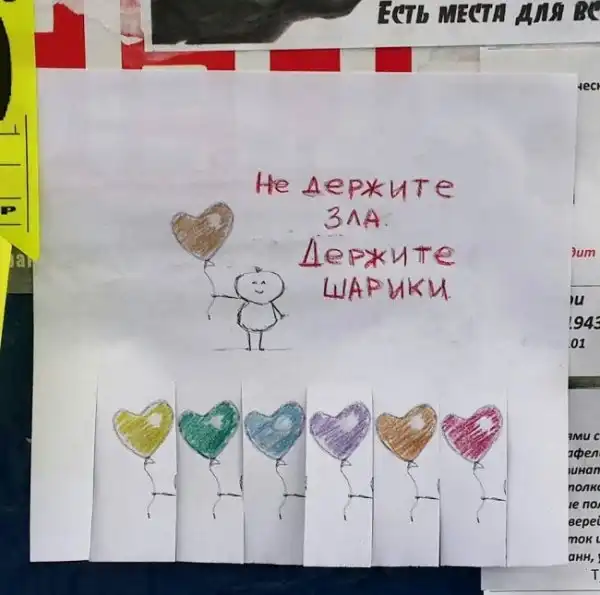 Есть места для
Не держите
зла.
Держите
шарики
1943
.01